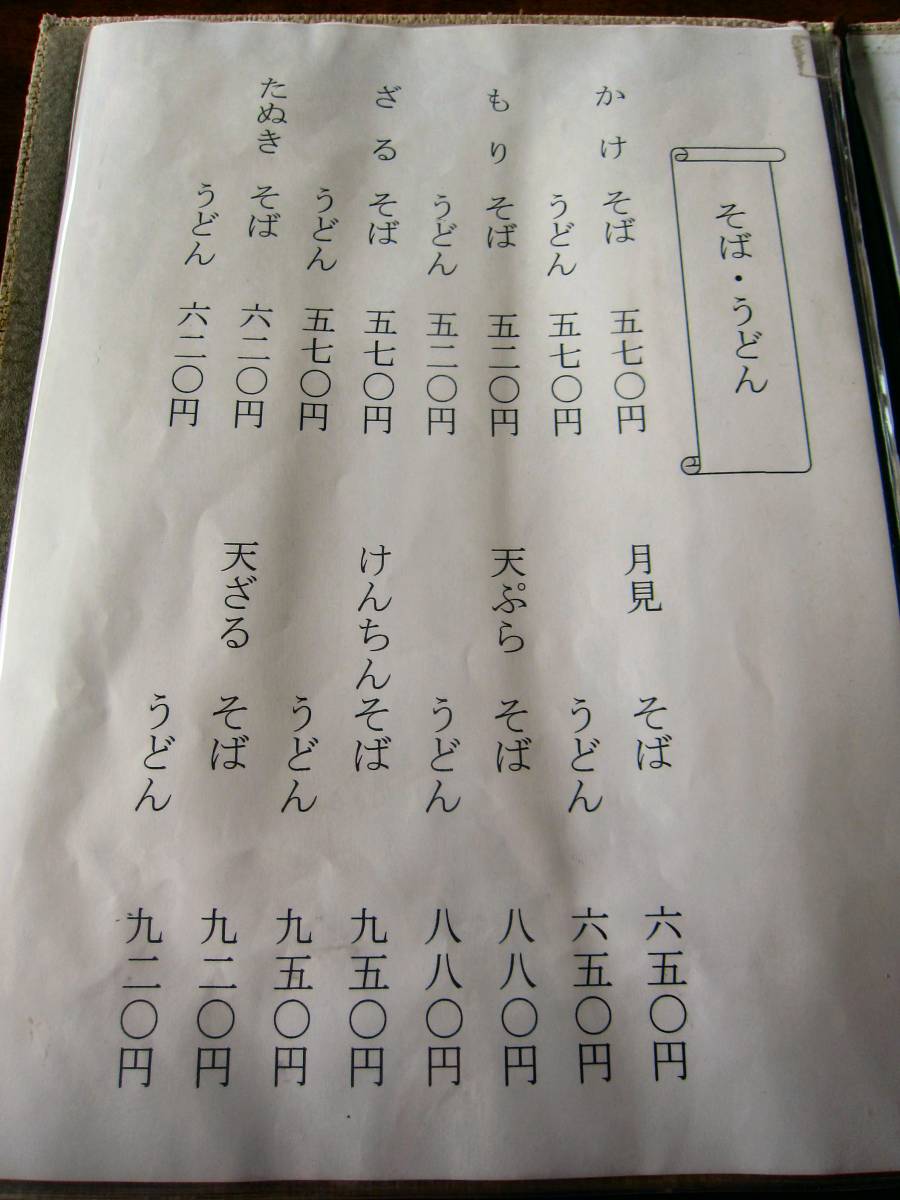 そば・うどん
かけ そば 五七〇円
うどん 五七〇円
もり そば 五二〇円
うどん 五二〇円
ざる そば 五七〇円
うどん 五七〇円
たぬき そば 六二〇円
うどん 六二〇円
月見 そば 六五〇円
うどん 六五〇円
天ぷら そば 八八〇円
うどん 八八〇円
けんちん そば 九五〇円
うどん 九五〇円
天ざる そば 九二〇円
うどん 九二〇円